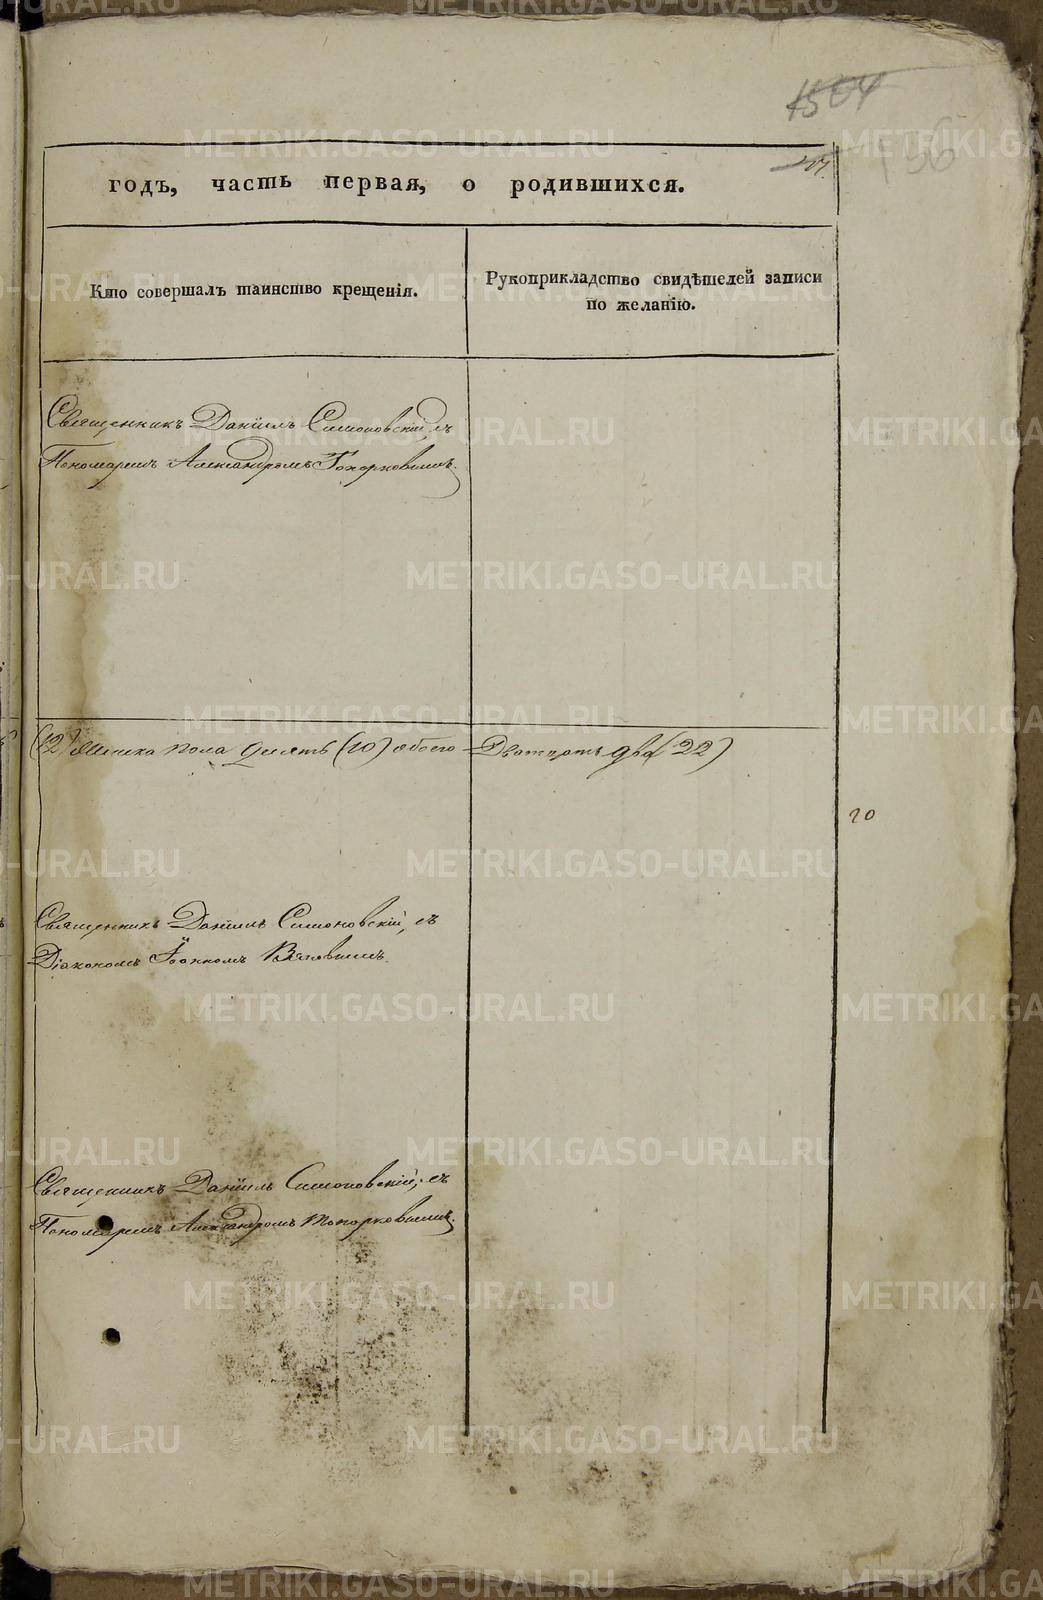 1504
годъ, часть первая, о родившихся.
Кто совершалъ таинство крещенія.
Рукоприкладство свидѣтелей записи
по желанію.
Священникъ Даніилъ Симоновскій, съ
Пономаремъ Александромъ Топорковымъ.
(12) женска пола десять (10) обоего Двадцать два (22)
20
Священникъ Даніилъ Симоновскій, съ
Діакономъ Іоанномъ
Священникъ Даніилъ Симоновскій, съ
Пономаремъ Александромъ Топорковымъ.
METRIKI.GASO-URAL.RU